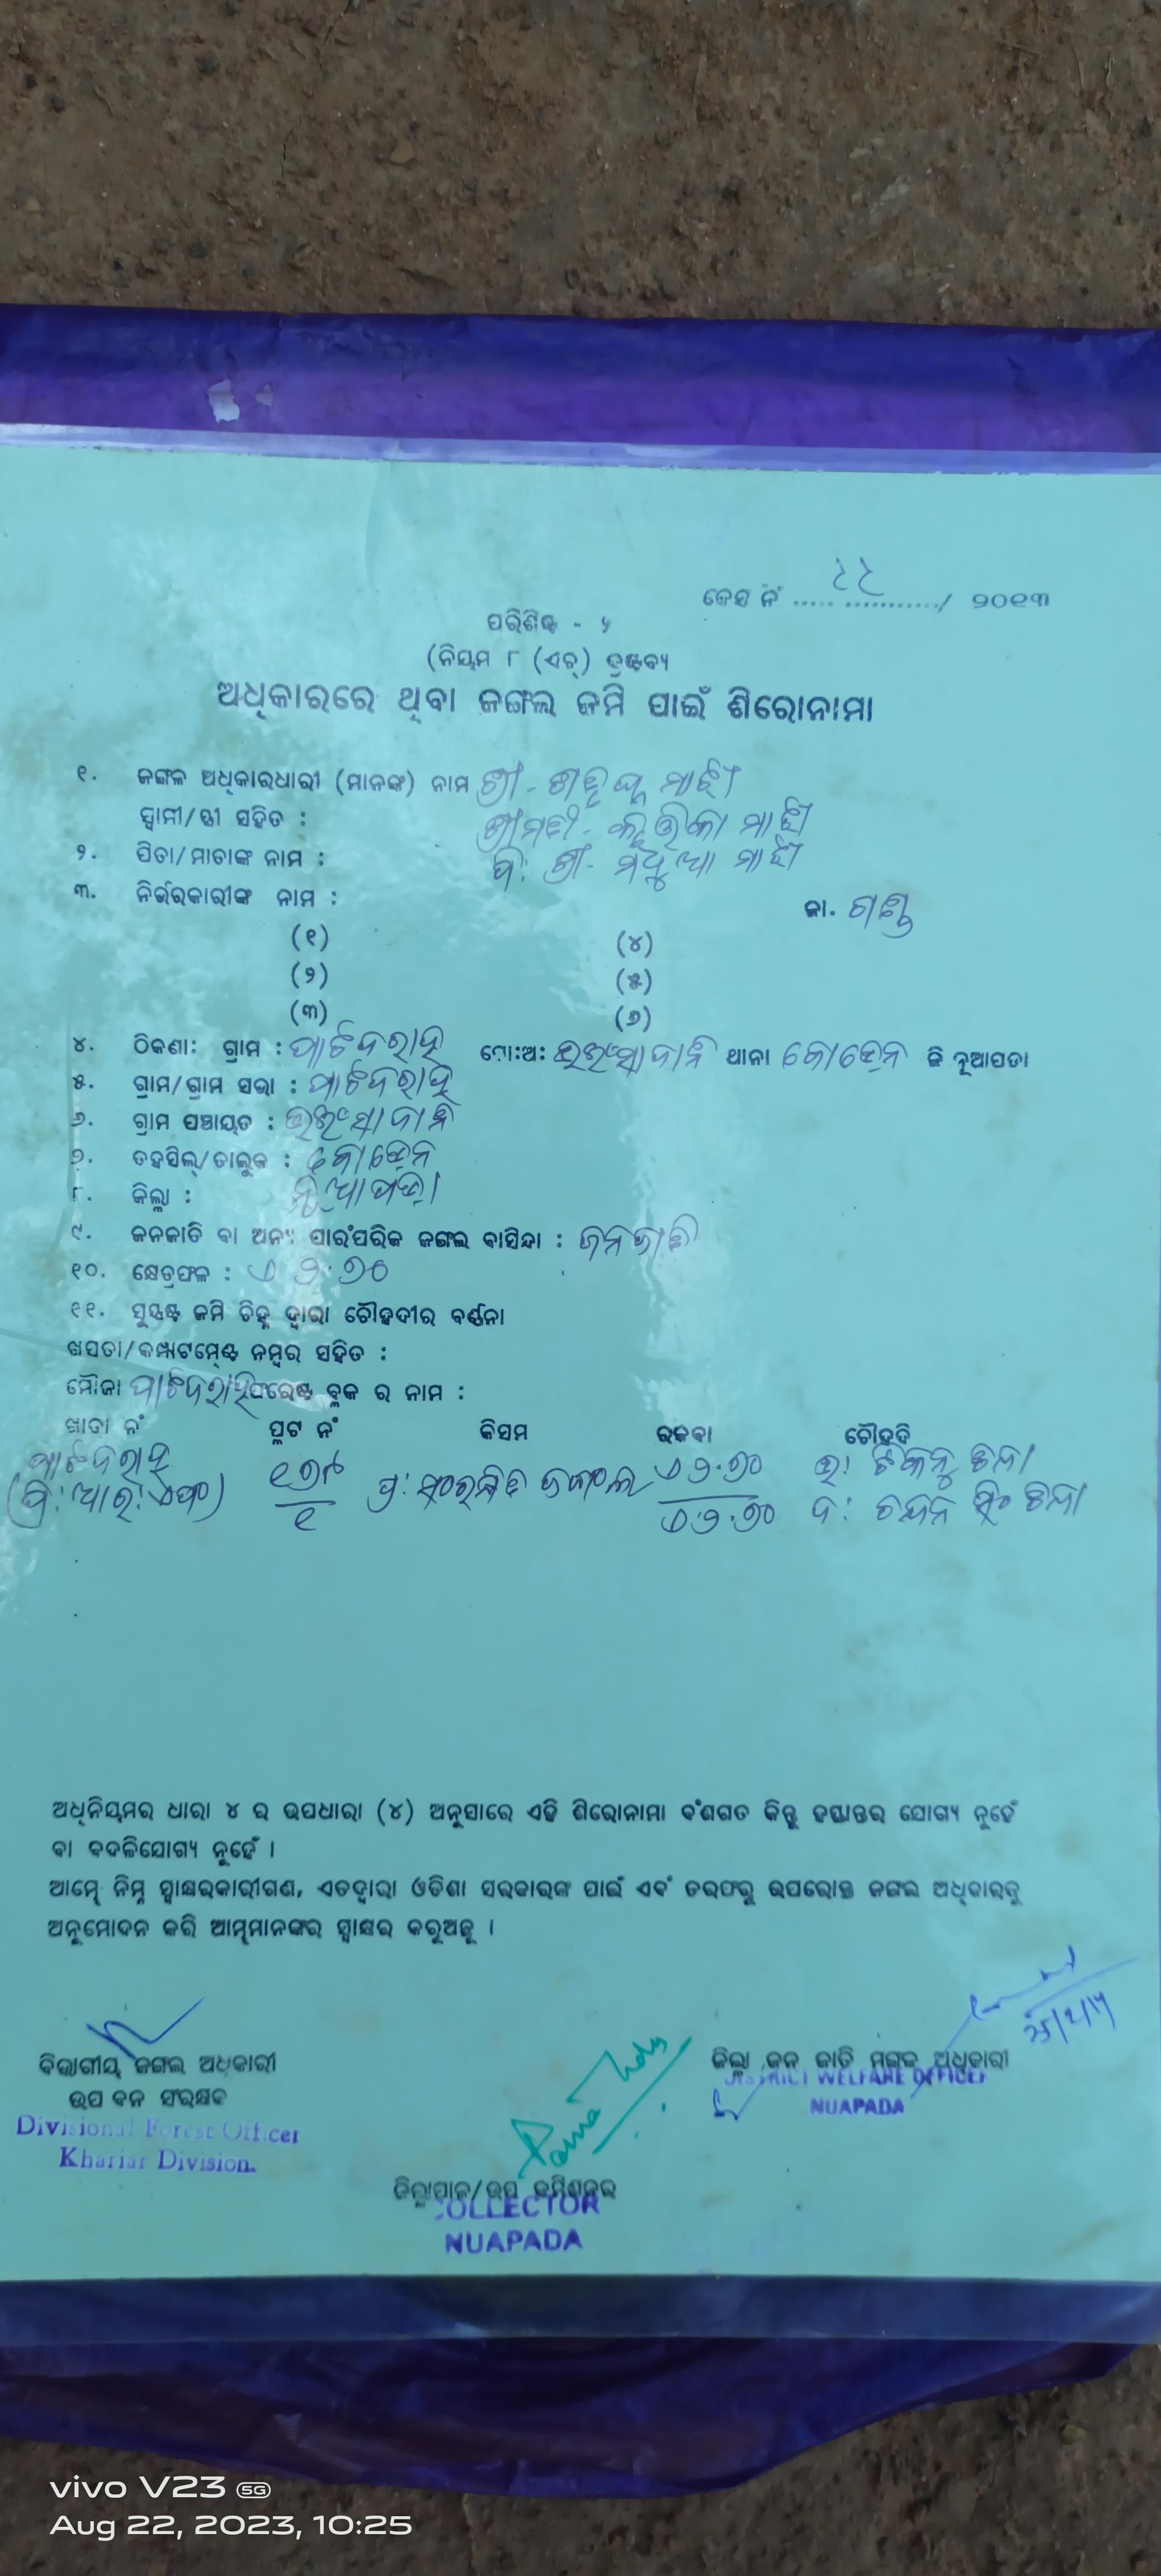 କେସ ନଂ ..... ............/ ୨୦୧୩
୨୨
ପରିଶିଷ୍ଟ - ୨
(ନିୟମ ୮ (ଏଚ୍) ଦ୍ରଷ୍ଟବ୍ୟ
ଅଧିକାରରେ ଥିବା ଜଙ୍ଗଲ ଜମି ପାଇଁ ଶିରୋନାମା
୧. ଜଙ୍ଗଳ ଅଧିକାରଧାରୀ (ମାନଙ୍କ) ନାମ ଶ୍ରୀ - ଶତୃଘ୍ନ ମାଝୀ
ସ୍ୱାମୀ/ସ୍ତ୍ରୀ ସହିତ : ଶ୍ରୀମତୀ - ମାଝୀ
୨. ପିତା/ମାତାଙ୍କ ନାମ : ପି: ଶ୍ରୀ - ମାଝୀ
୩. ନିର୍ଭରକାରୀଙ୍କ ନାମ : ଜା. ଗଣ୍ଡ
(୧) (୪)
(୨) (୫)
(୩) (୬)
୪. ଠିକଣା: ଗ୍ରାମ : ପାଟିଦରାହ ପୋ:ଅ: ଥାନା କୋମନା ଜି ନୂଆପଡା
୫. ଗ୍ରାମ/ଗ୍ରାମ ସଭା : ପାଟିଦରାହ
୬. ଗ୍ରାମ ପଞ୍ଚାୟତ :
୭. ତହସିଲ୍/ତାଲୁକ : କୋମନା
୮. ଜିଲ୍ଲା : ନୁଆପଡ଼ା
୯. ଜନଜାତି ବା ଅନ୍ୟ ପାରଂପରିକ ଜଙ୍ଗଲ ବାସିନ୍ଦା : ଜନଜାତି
୧୦. କ୍ଷେତ୍ରଫଳ : ଏ ୨.୭୦
୧୧. ସୁସ୍ପଷ୍ଟ ଜମି ଚିହ୍ନ ଦ୍ୱାରା ଚୌହଦୀର ବର୍ଣ୍ଣନା
ଖସଡା/କମ୍ପାଟମେଣ୍ଟ ନମ୍ବର ସହିତ :
ମୌଜା ପାଟିଦରାହ ଫରେଷ୍ଟ ବ୍ଲକ ର ନାମ :
ଖାତା ନଂ ପ୍ଲଟ ନଂ କିସମ ରକବା ଚୌହଦି
ପାଟିଦରାହ ୧୭୮ ଏ ୨.୭୦ ଉ: ଟିକନୁ ଜମି
(ପି: ଆର: ଏଫ) ୧ ପ୍ର: ସଂରକ୍ଷିତ ଜଙ୍ଗଲ ଏ ୨.୭୦ ଦ: ଚନ୍ଦନ ସିଂ ଜମି
ଅଧିନିୟମର ଧାରା ୪ ର ଉପଧାରା (୪) ଅନୁସାରେ ଏହି ଶିରୋନାମା ବଂଶଗତ କିନ୍ତୁ ହସ୍ତାନ୍ତର ଯୋଗ୍ୟ ନୁହେଁ
ବା ବଦଳିଯୋଗ୍ୟ ନୁହେଁ ।
ଆମ୍ଭେ ନିମ୍ନ ସ୍ୱାକ୍ଷରକାରୀଗଣ, ଏତଦ୍ୱାରା ଓଡିଶା ସରକାରଙ୍କ ପାଇଁ ଏବଂ ତରଫରୁ ଉପରୋକ୍ତ ଜଙ୍ଗଲ ଅଧିକାରକୁ
ଅନୁମୋଦନ କରି ଆମ୍ଭମାନଙ୍କର ସ୍ୱାକ୍ଷର କରୁଅଛୁ ।
ବିଭାଗୀୟ ଜଙ୍ଗଲ ଅଧିକାରୀ
ଉପ ବନ ସଂରକ୍ଷକ
Divisional Forest Officer
Khariar Division.
ଜିଲ୍ଲା ଜନ ଜାତି ମଙ୍ଗଳ ଅଧିକାରୀ
DISTRICT WELFARE OFFICER
NUAPADA
ଜିଲ୍ଲାପାଳ/ଉପ କମିଶନର
COLLECTOR
NUAPADA
vivo V23 5G
Aug 22, 2023, 10:25